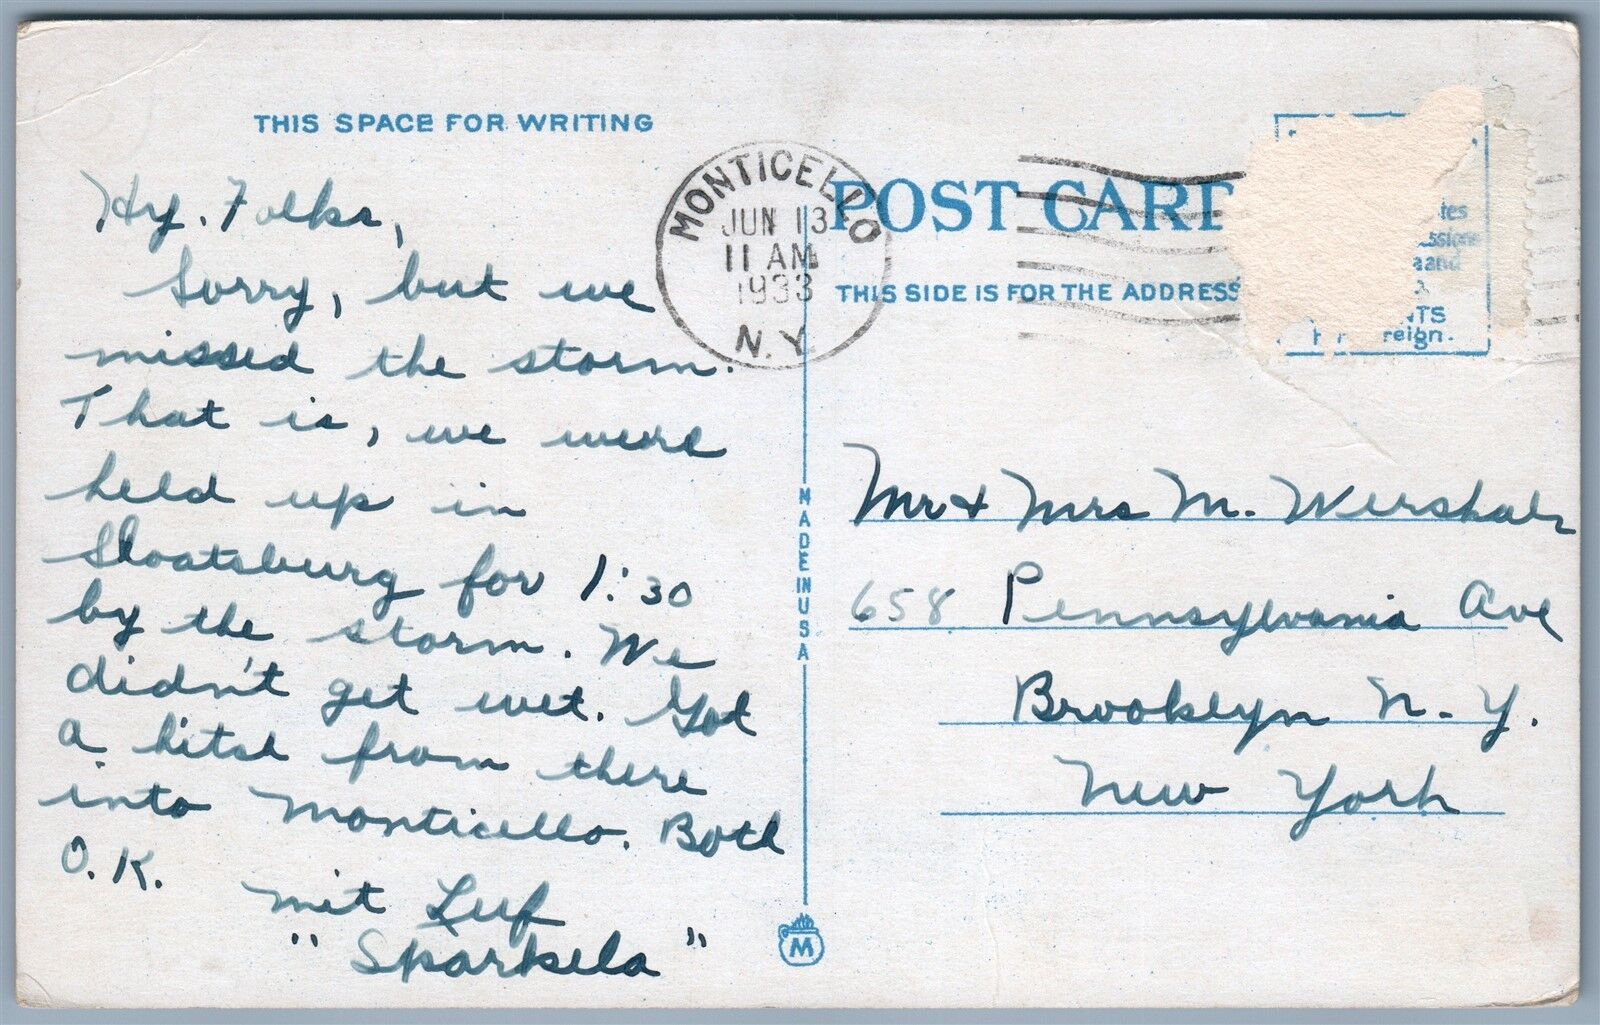 THIS SPACE FOR WRITING
Hy. Folks,
Sorry, but we
missed the storm.
That is, we were
held up in
Sloatsburg for 1:30
by the storm. We
didn't get wet. Got
a hitch from there
into Monticello. Both
O.K.
mit Luf
"Sparkela"
MONTICELLO
JUN 13
11 AM
1933
N.Y.
POST CARD
THIS SIDE IS FOR THE ADDRESS
reign.
MADE IN USA
Mr & Mrs M. Wershals
658 Pennsylvania Ave
Brooklyn N.Y.
New York
M